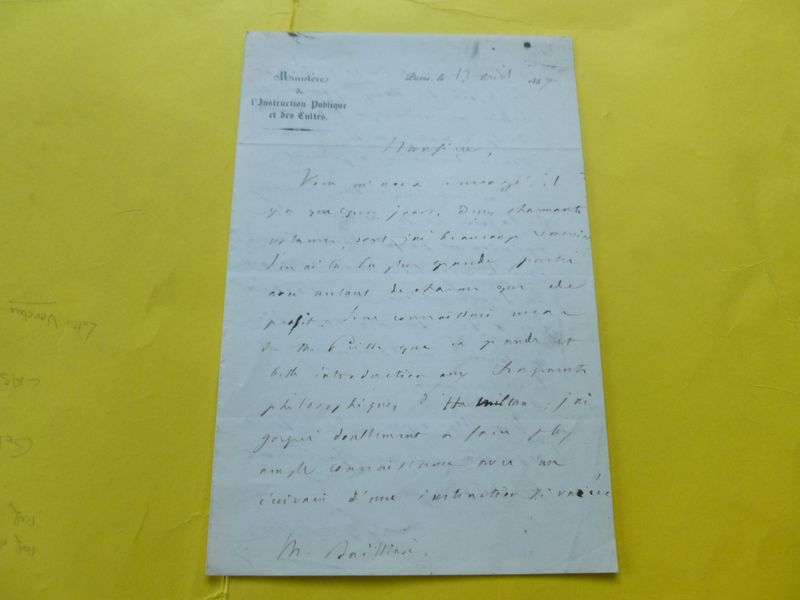 Ministère
de
l'Instruction Publique
et des Cultes.
Paris, le 17 avril 1847
Monsieur,
Vous m'avez envoyé, il
y a quelques jours, deux charmants
volumes, dont j'ai beaucoup
J'en ai lu la plus grande partie
avec autant de charme que de
profit. Je ne connaissais
de que sa grande et
belle introduction aux fragments
philosophiques d'Hamilton ; j'ai
gagné doublement à faire plus
ample connaissance avec un
écrivain d'une instruction si variée
M.